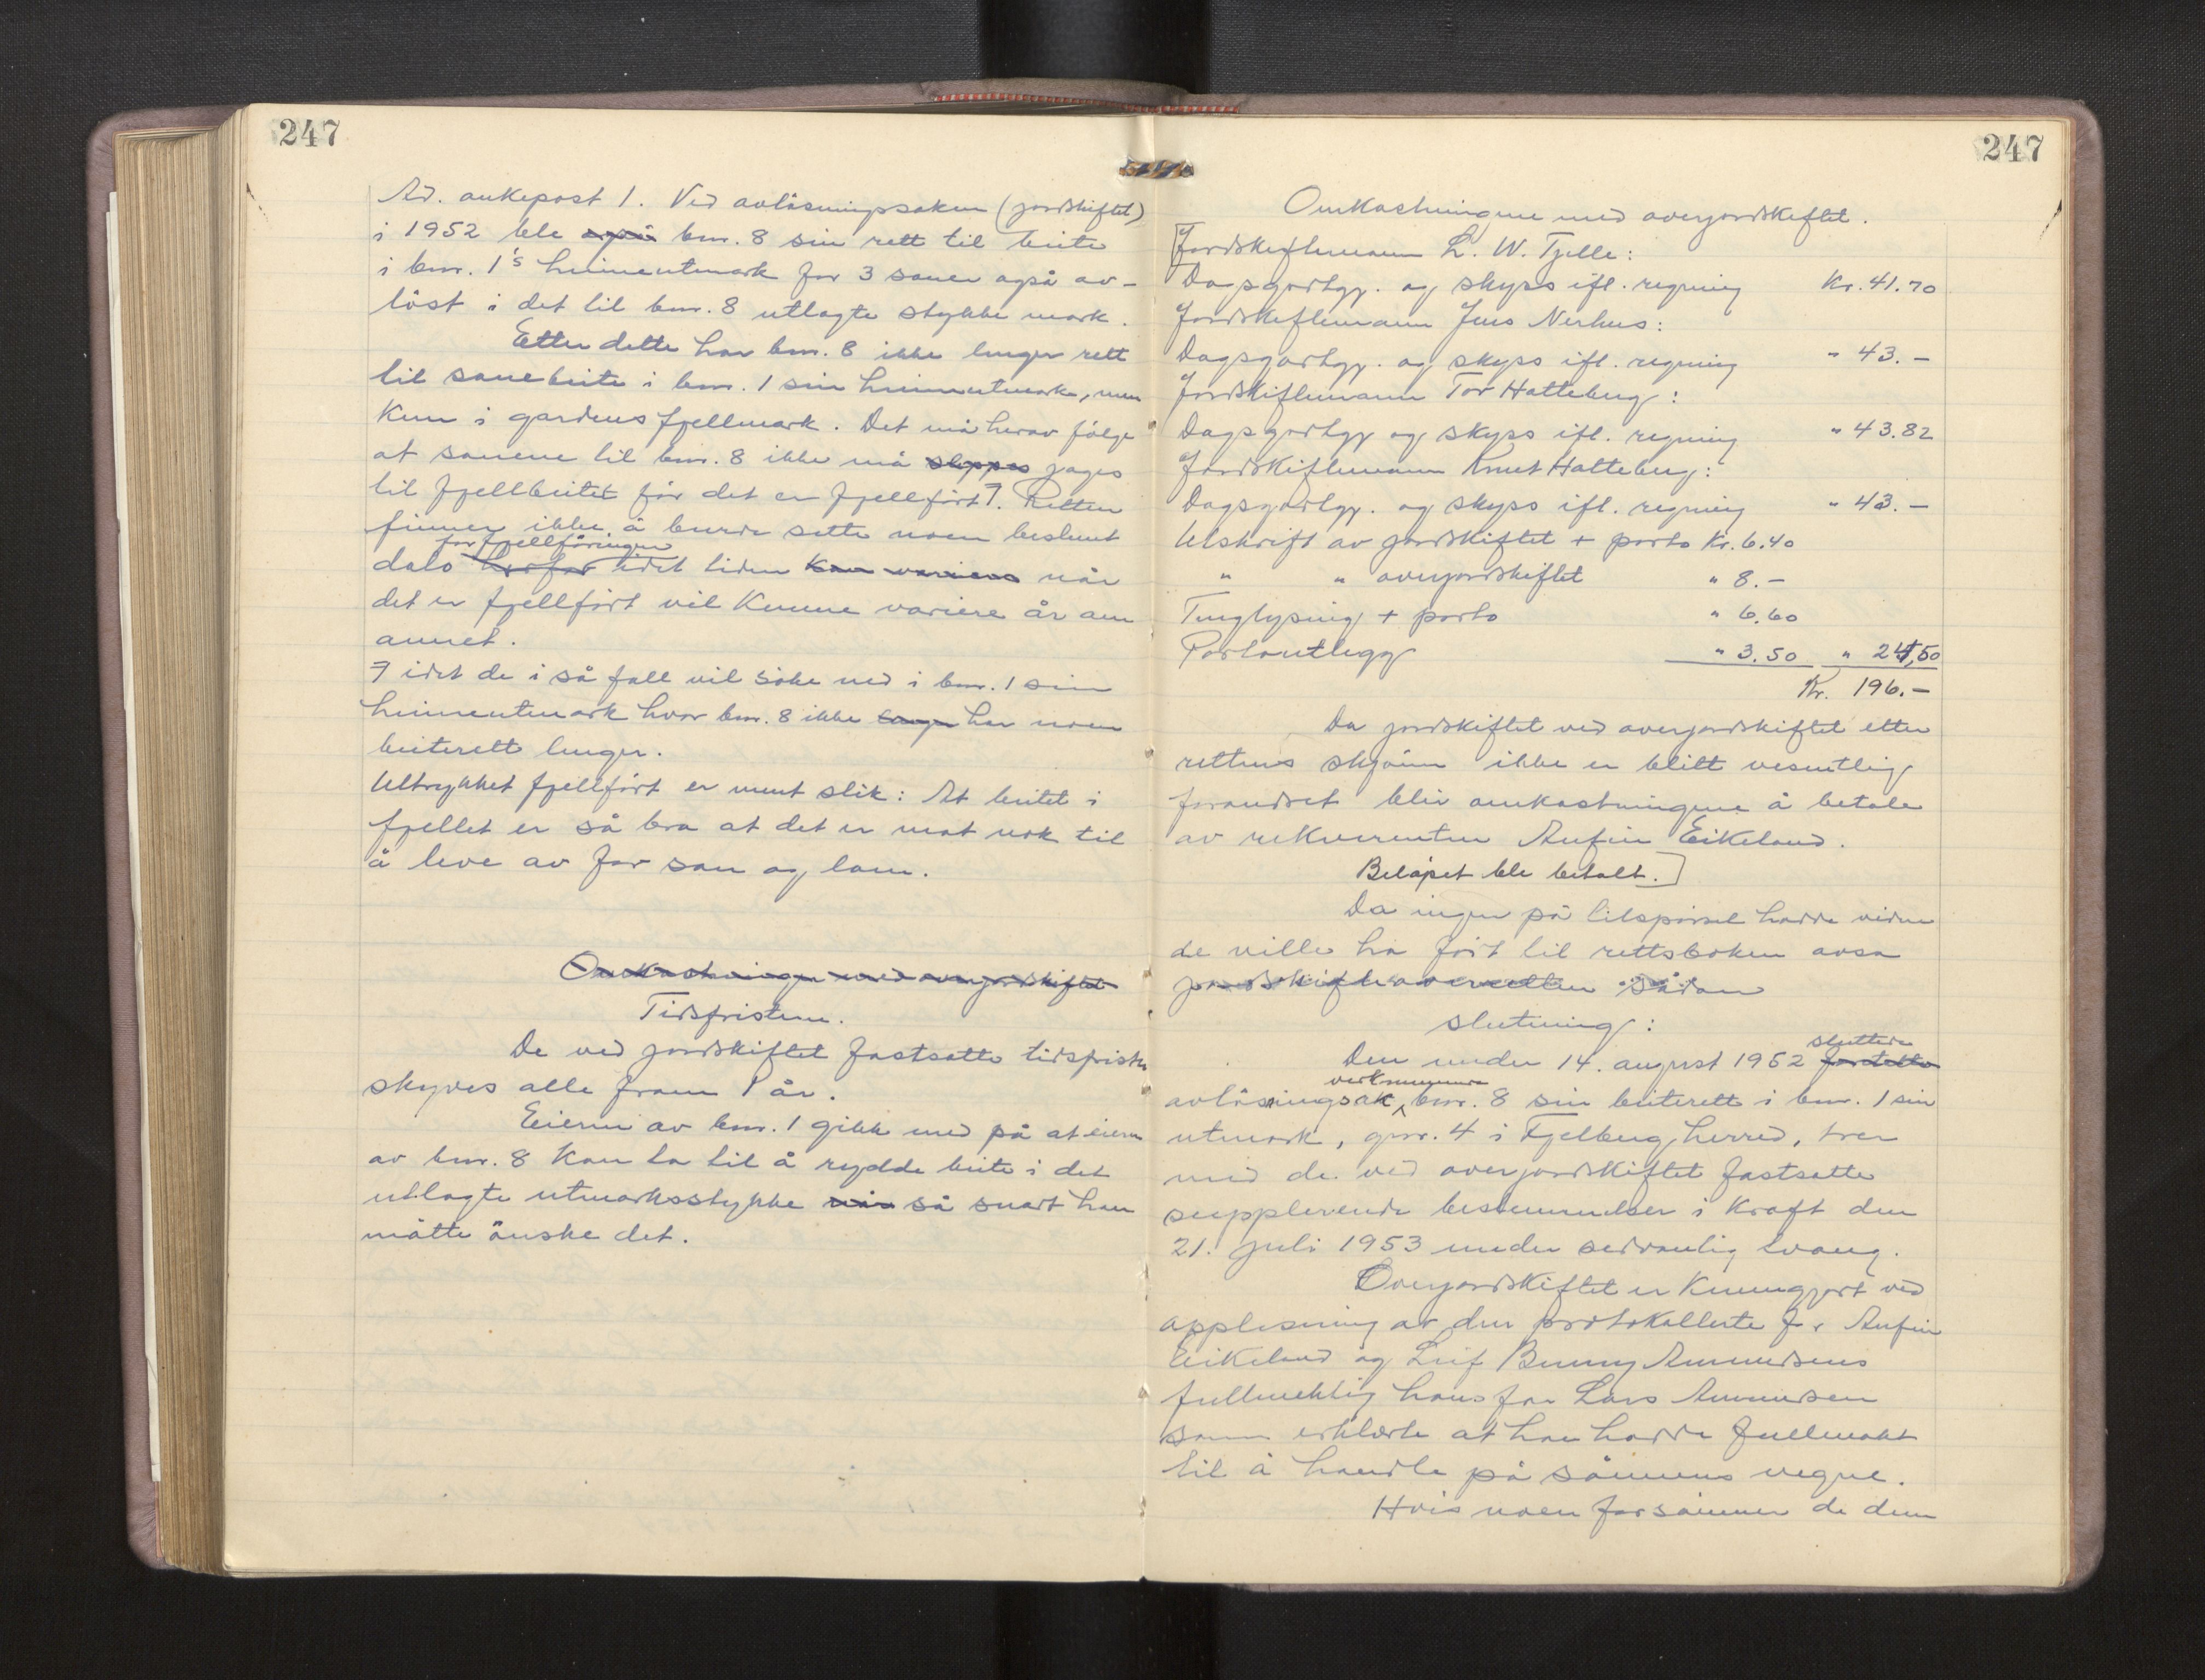 247
Ad. ankepost 1. Ved avlösningssaken (jordskiftet)
i 1952 ble også bnr. 8 sin rett til beite
i bnr. 1's heimeutmark for 3 sauer også av-
löst i det til bnr. 8 utlagte stykke mark.
Etter dette har bnr. 8 ikke lenger rett
til sauebeite i bnr. 1 sin heimeutmark, men
kun i gardens fjellmark. Det må herav fölge
at sauene til bnr. 8 ikke må slippes jages
til fjellbeitet för det er fjellfört ꟻ. Retten
finner ikke å burde sette noen bestemt
for fjellföringen
dato herfor idet tiden kan varieres når
det er fjellfört vil kunne variere år om
annet.
ꟻ idet de i så fall vil söke ned i bnr. 1 sin
heimeutmark hvor bnr. 8 ikke lenger har noen
beiterett lenger.
Uttrykket fjellfört er ment slik: At beitet i
fjellet er så bra at det er mat nok til
å leve av for sau og lam.
Omkostninger med overjordskiftet
Tidsfristene.
De ved jordskiftet fastsatte tidsfrister
skyves alle fram 1 år.
Eieren av bnr. 1 gikk med på at eieren
av bnr. 8 kan ta til å rydde beite i det
utlagte utmarksstykke når så snart han
måtte önske det.
247
Omkostningene med overjordskiftet.
[Jordskiftemann L. W. Tjelle:
Dagsgodtgj. og skyss ifl. regning Kr. 41.70
Jordskiftemann Jens Nerhus:
Dagsgodtgj. og skyss ifl. regning " 43.-
Jordskiftemann Tor Hatteberg:
Dagsgodtgj og skyss ifl. regning " 43.82
Jordskiftemann Knut Hatteberg:
Dagsgodtgj. og skyss ifl. regning " 43.-
Utskrift av jordskiftet + porto Kr. 6.40
" " overjordskiftet " 8.-
Tinglysing + porto " 6.60
Portoutlegg " 3.50 " 24,50
Kr. 196.-
Da jordskiftet ved overjordskiftet etter
rettens skjönn ikke er blitt vesentlig
forandret blir omkostningene å betale
av rekvirenten Anfin Eikeland.
Belöpet ble betalt.]
Da ingen på tilspörsel hadde videre
de ville ha fört til rettsboken avsa
jordskifteoverretten sådan
slutning:
sluttede
Den under 14. august 1952 fortatte
vedkommende
avlösningsak bnr. 8 sin beiterett i bnr. 1 sin
utmark, gnr. 4 i Fjelberg herred, trer
med de ved overjordskiftet fastsatte
supplerende bestemmelser i kraft den
21. juli 1953 under sedvanlig tvang.
Overjordskiftet er kunngjort ved
opplesning av den protokollerte for Anfin
Eikeland og Leif Bunny Amundsens
fullmektig hans far Lars Amundsen
som erklærte at han hadde fullmakt
til å handle på sönnens vegne.
Hvis noen forsömmer de dem